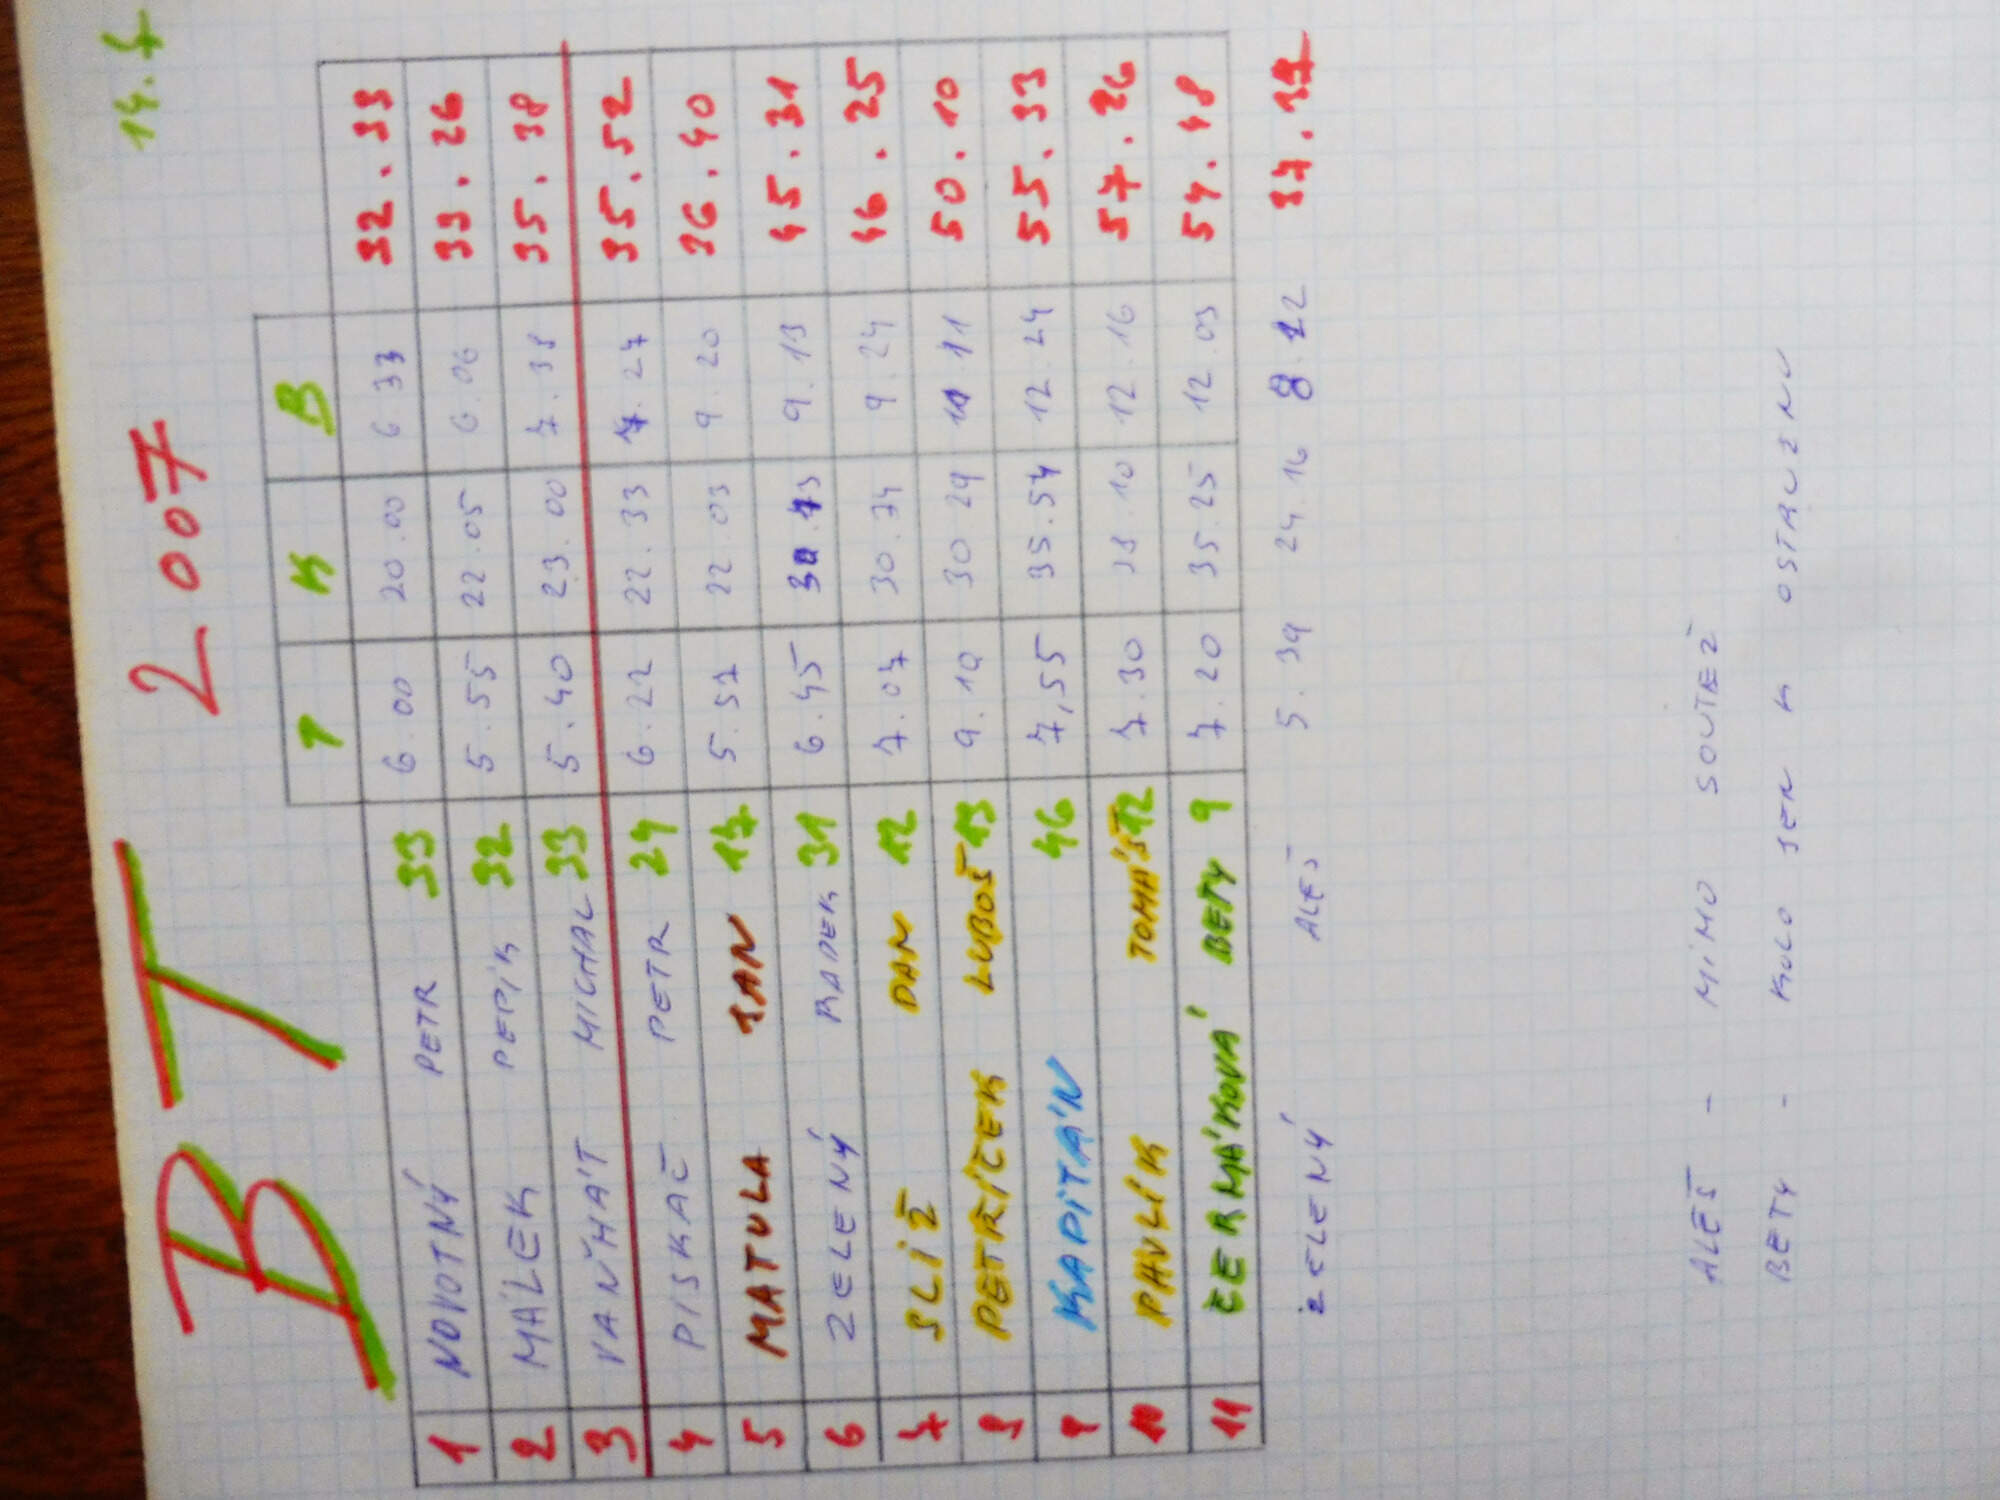 14.7
BT 2007
T K B
1 NOVOTNÝ PETR 33 6.00 20.00 6.33 32.33
2 MÁLEK PEPÍK 32 5.55 22.05 6.06 33.26
3 VAŇHÁT MICHAL 33 5.40 23.00 7.38 35.38
4 PISKAČ PETR 24 6.22 22.33 7.27 35.52
5 MATULA JAN 17 5.57 22.03 9.20 36.40
6 ZELENÝ RADEK 31 6.45 9.13 45.31
7 SLIŽ DAN 12 7.07 9.24 46.25
8 PETŘÍČEK LUBOŠ 13 9.10 30 29 11 50.10
9 KAPITÁN 46 7,55 35.54 12.24 55.33
10 PAVLÍK TOMÁŠ 12 7.30 38.10 12.16 57.26
11 ČERMÁKOVÁ BETY 9 7.20 35.25 12.03 54.48
ZELENÝ ALEŠ 5.39 24.16 8.12
ALEŠ - MIMO SOUTĚŽ
BETY - KOLO JEN K OSTRUZNU